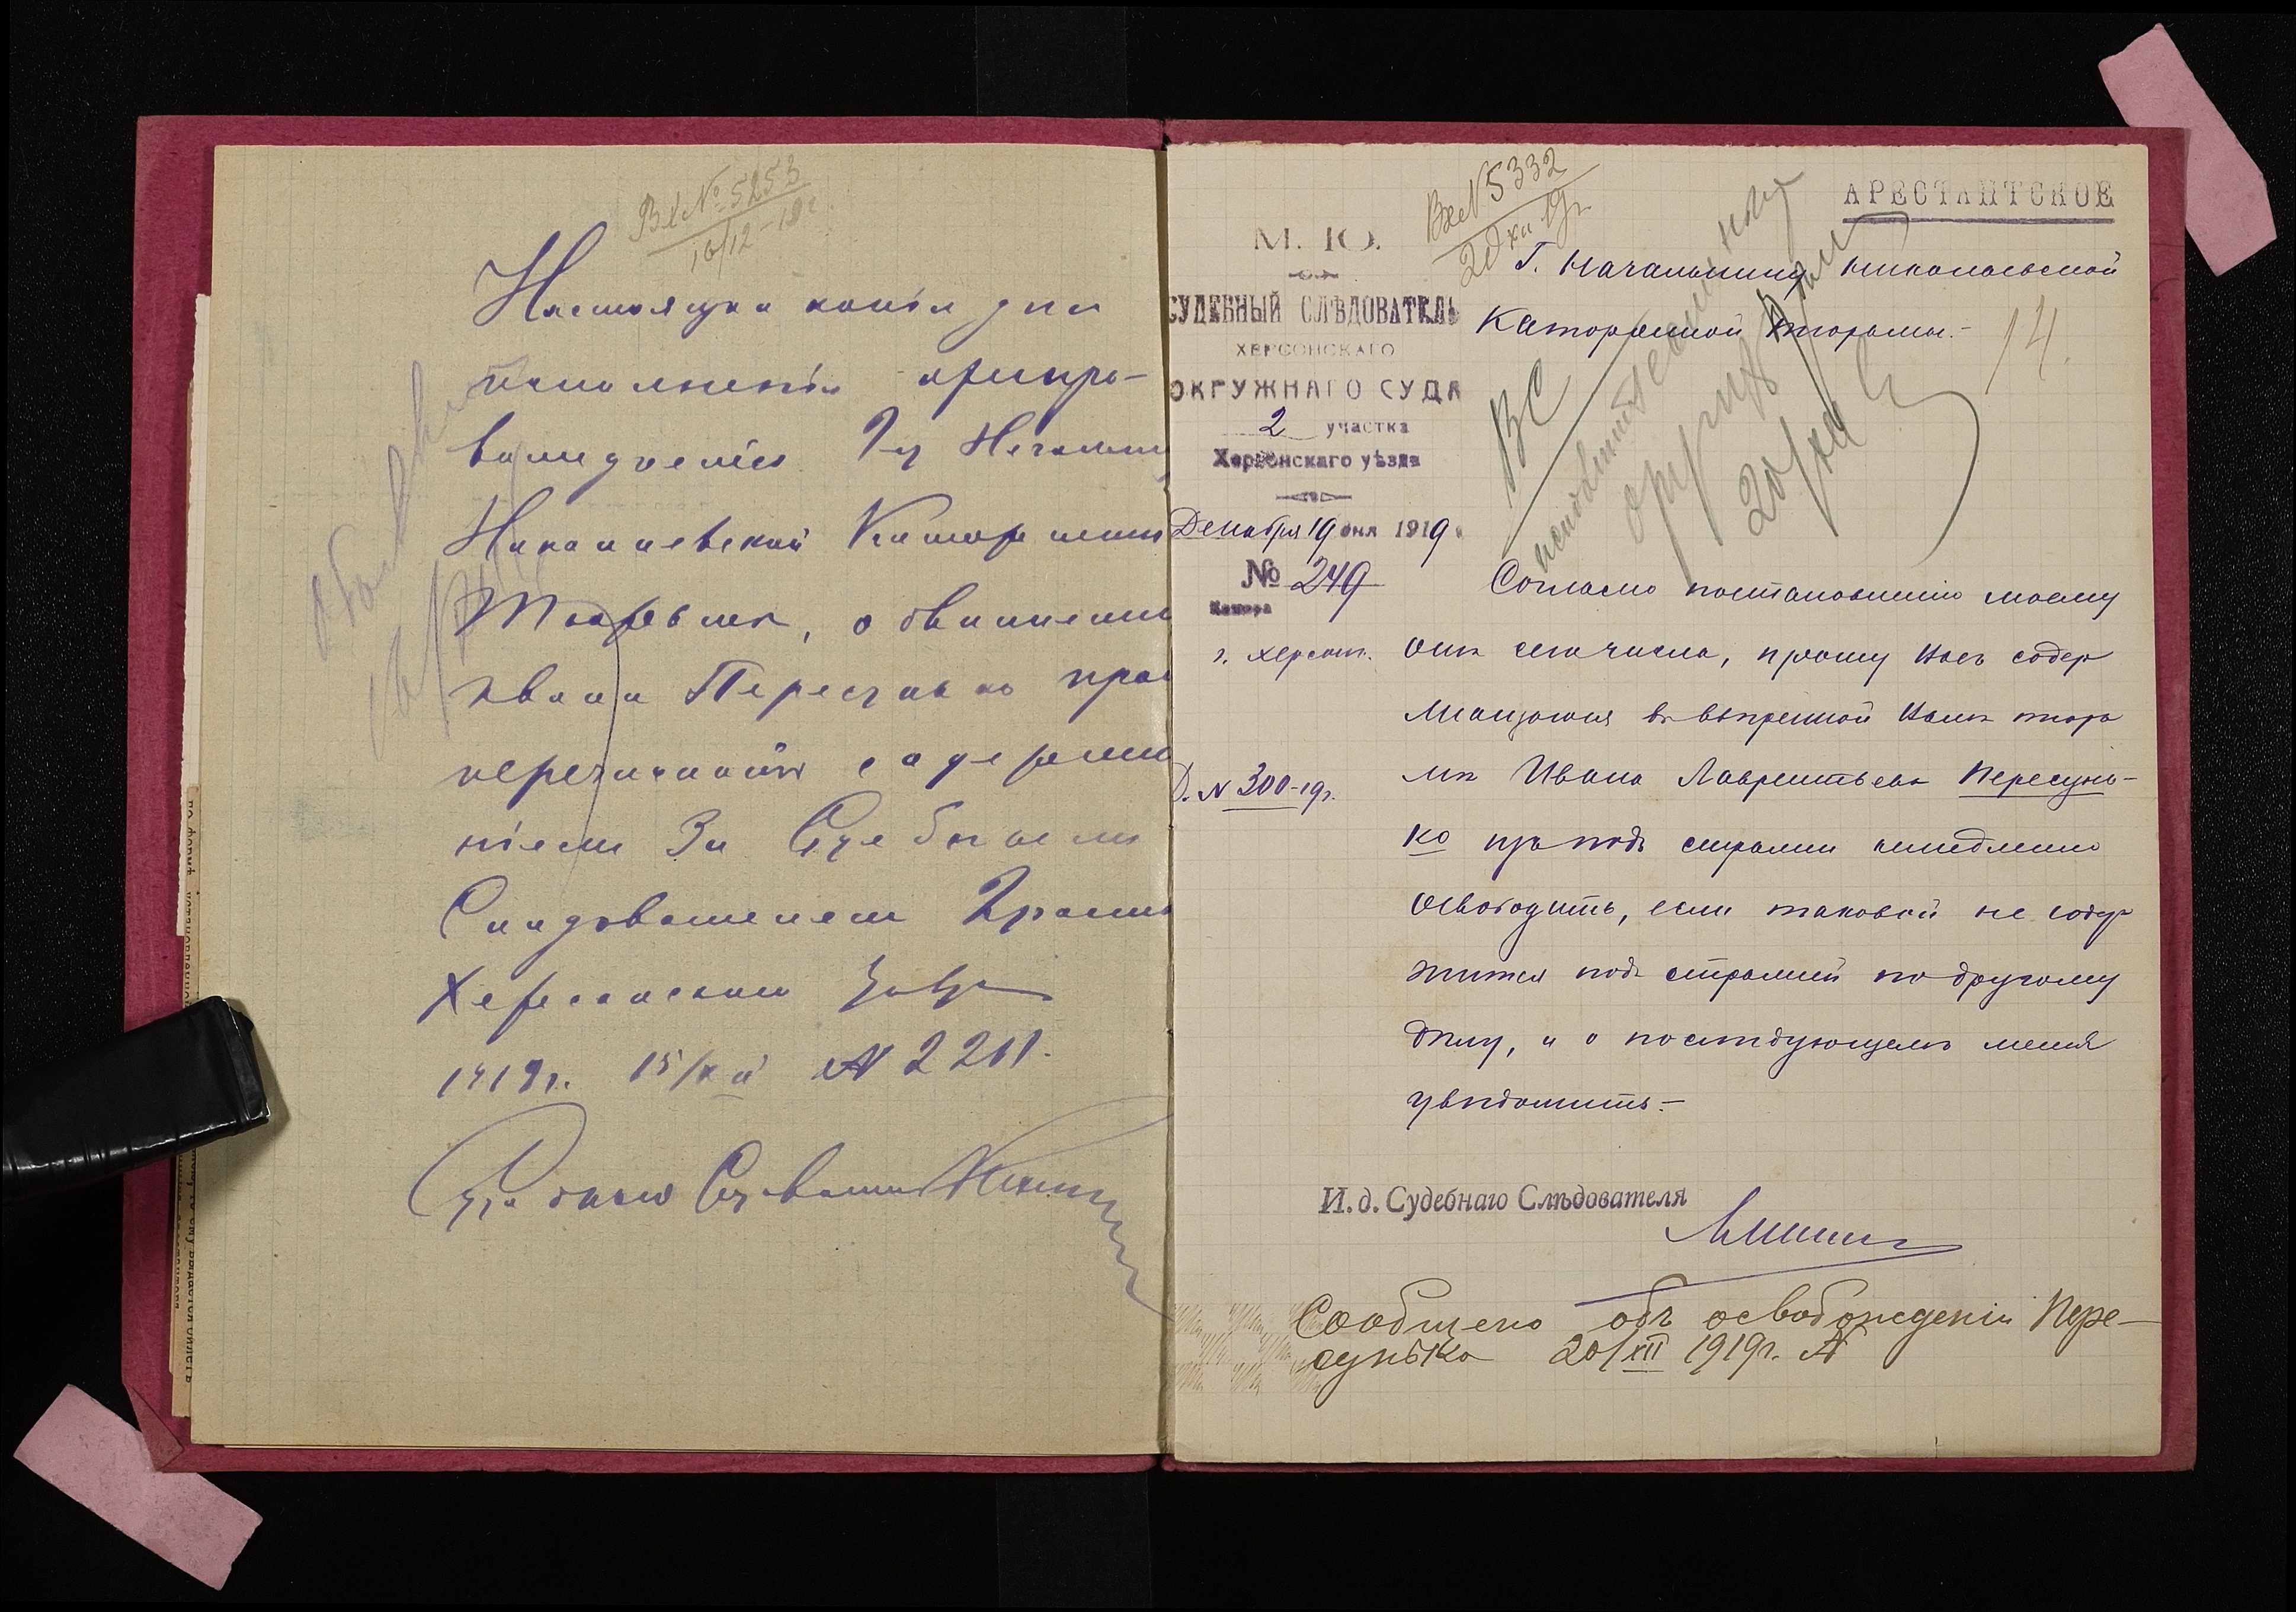 Вх № 5253
16/12-19г
Настоящая копія для
исполненія препро-
вождается Гну Начальни
Николаевской Каторжной
Тюрьмы, обвиняемый
Иванъ Пересунько
перечисленъ содержа
ніемъ За Судебнымъ
Следователемъ
Херсонскаго уѣзда
1919г. 15/XII № 2211.
Судебный Следователь
Вх № 5332
20 XII 19 г
АРЕСТАНТСКОЕ
М. Ю.
СУДЕБНЫЙ СЛѢДОВАТЕЛЬ
ХЕРСОНСКАГО
ОКРУЖНАГО СУДА
2 участка
Херсонскаго уѣзда
Декабря 19 дня 1919 г.
№ 249
Камера
г. Херсонъ.
Д. № 300-19г.
Г. Начальнику Николаевской
Каторжной тюрьмы.-
14.
ВС
20/XII
Согласно постановленію моему
отъ сего числа, прошу Васъ содер
жащагося въ ввѣренной Вамъ тюрь
мѣ Ивана Лаврентьева Пересунь-
ко изъ подъ стражи немедленно
освободить, если таковой не содер
жится подъ стражей по другому
дѣлу, и о послѣдующемъ меня
увѣдомить.-
И. д. Судебнаго Слѣдователя
Сообщено объ освобожденіи Пере-
сунько 20/XII 1919г. №